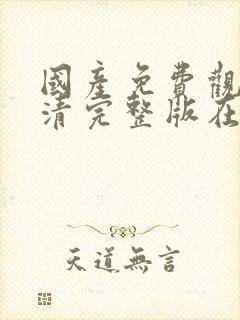 國產免費觀
清完整版在
天道無言